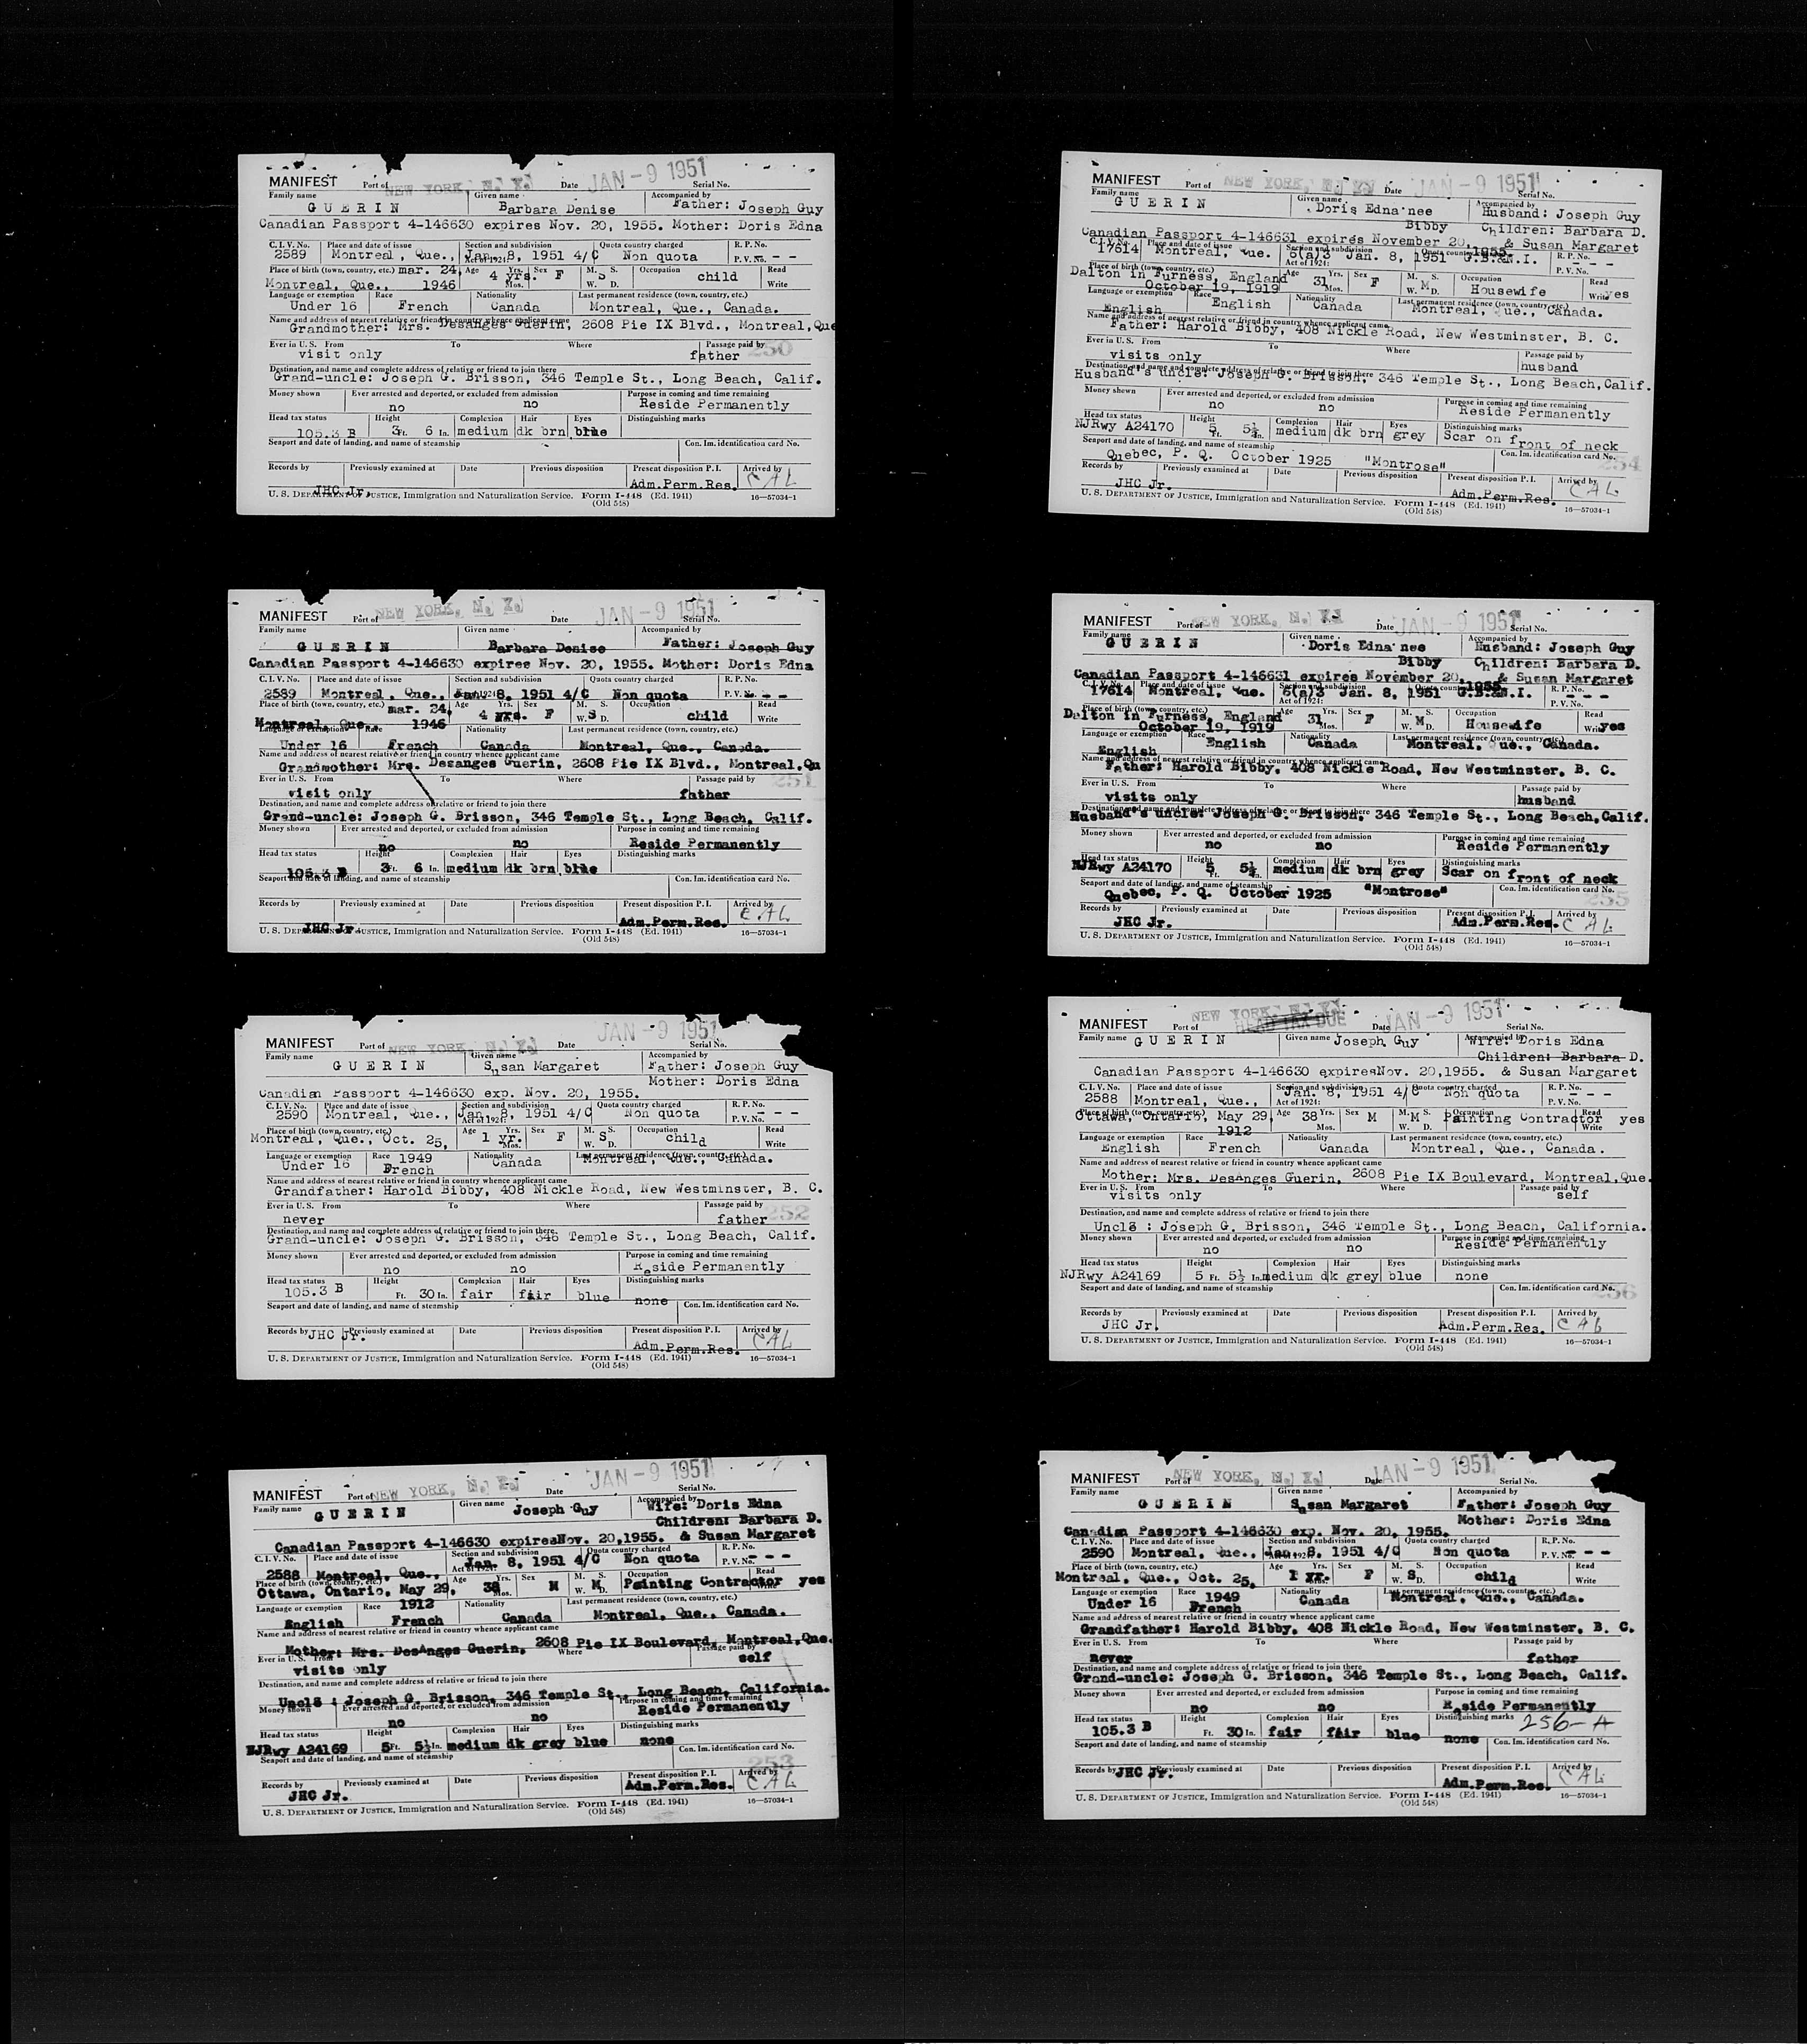 MANIFEST Port of NEW YORK, N. Y. Date JAN - 9 1951 Serial No.
Family name Given name Accompanied by
GUERIN Barbara Denise Father: Joseph Guy
Canadian Passport 4-146630 expires Nov. 20, 1955. Mother: Doris Edna
C. I. V. No. Place and date of issue Section and subdivision Act of 1924: Quota country charged R. P. No.
2589 Montreal, Que., Jan. 8, 1951 4/C Non quota P. V. No. - -
Place of birth (town, country, etc.) mar. 24, Age Yrs. Sex M. S. Occupation Read
Montreal, Que., 1946 4 yrs. Mos. F S W. D. child Write
Language or exemption Race Nationality Last permanent residence (town, country, etc.)
Under 16 French Canada Montreal, Que., Canada.
Name and address of nearest relative or friend in country whence applicant came
Grandmother: Mrs. Desanges Guerin, 2608 Pie IX Blvd., Montreal, Que
Ever in U. S. From To Where Passage paid by
visit only father 250
Destination, and name and complete address of relative or friend to join there
Grand-uncle: Joseph G. Brisson, 346 Temple St., Long Beach, Calif.
Money shown Ever arrested and deported, or excluded from admission Purpose in coming and time remaining
no no Reside Permanently
Head tax status Height Complexion Hair Eyes Distinguishing marks
105.3 B 3 Ft. 6 In. medium dk brn blue
Seaport and date of landing, and name of steamship Con. Im. identification card No.
Records by Previously examined at Date Previous disposition Present disposition P. I. Arrived by
JHC Jr. Adm.Perm.Res. CAL
U. S. DEPARTMENT OF JUSTICE, Immigration and Naturalization Service. Form I-448 (Ed. 1941) 16—57034-1
(Old 548)
MANIFEST Port of NEW YORK, N. Y. Date JAN - 9 1951 Serial No.
Family name Given name Accompanied by
GUERIN Doris Edna nee Husband: Joseph Guy
Bibby Children: Barbara D.
Canadian Passport 4-146631 expires November 20, 1955. & Susan Margaret
C. I. V. No. Place and date of issue Section and subdivision Act of 1924: Quota country R. P. No.
17614 Montreal, Que. 6(a)3 Jan. 8, 1951 G.B.&N.I. - - -
P. V. No.
Place of birth (town, country, etc.) Age Yrs. Sex M. S. Occupation Read
Dalton in Furness, England 31 Mos. F M W. D. Housewife Write yes
October 19, 1919
Language or exemption Race Nationality Last permanent residence (town, country, etc.)
English English Canada Montreal, Que., Canada.
Name and address of nearest relative or friend in country whence applicant came
Father: Harold Bibby, 408 Nickle Road, New Westminster, B. C.
Ever in U. S. From To Where Passage paid by
visits only husband
Destination, and name and complete address of relative or friend to join there
Husband's uncle: Joseph G. Brisson, 346 Temple St., Long Beach, Calif.
Money shown Ever arrested and deported, or excluded from admission Purpose in coming and time remaining
no no Reside Permanently
Head tax status Height Complexion Hair Eyes Distinguishing marks
NJRwy A24170 5 Ft. 5½ In. medium dk brn grey Scar on front of neck
Seaport and date of landing, and name of steamship Con. Im. identification card No.
Quebec, P. Q. October 1925 "Montrose" 254
Records by Previously examined at Date Previous disposition Present disposition P. I. Arrived by
JHC Jr. Adm.Perm.Res. CAL
U. S. DEPARTMENT OF JUSTICE, Immigration and Naturalization Service. Form I-448 (Ed. 1941) 16—57034-1
(Old 548)
MANIFEST Port of NEW YORK, N. Y. Date JAN - 9 1951 Serial No.
Family name Given name Accompanied by
GUERIN Barbara Denise Father: Joseph Guy
Canadian Passport 4-146630 expires Nov. 20, 1955. Mother: Doris Edna
C. I. V. No. Place and date of issue Quota country charged R. P. No.
2589 Montreal, Que., Jan. 8, 1951 4/C Non quota P. V. No. - -
Place of birth (town, country, etc.) mar. 24, Age Yrs. Sex M. S. Occupation Read
Montreal, Que., 1946 4 yrs. F S W. D. child Write
Language or exemption Race Nationality Last permanent residence (town, country, etc.)
Under 16 French Canada Montreal, Que., Canada.
Name and address of nearest relative or friend in country whence applicant came
Grandmother: Mrs. Desanges Guerin, 2608 Pie IX Blvd., Montreal, Qu
Ever in U. S. From To Where Passage paid by
visit only father 251
Destination, and name and complete address of relative or friend to join there
Grand-uncle: Joseph G. Brisson, 346 Temple St., Long Beach, Calif.
Money shown Ever arrested and deported, or excluded from admission Purpose in coming and time remaining
no no Reside Permanently
Head tax status Height Complexion Hair Eyes Distinguishing marks
105.3 B 3 Ft. 6 In. medium dk brn blue
Seaport and date of landing, and name of steamship Con. Im. identification card No.
Records by Previously examined at Date Previous disposition Present disposition P. I. Arrived by
JHC Jr. Adm.Perm.Res. CAL
U. S. DEPARTMENT OF JUSTICE, Immigration and Naturalization Service. Form I-448 (Ed. 1941) 16—57034-1
(Old 548)
MANIFEST Port of NEW YORK, N. Y. Date JAN - 9 1951 Serial No.
Family name Given name Accompanied by
GUERIN Doris Edna nee Husband: Joseph Guy
Bibby Children: Barbara D.
Canadian Passport 4-146631 expires November 20, 1955. & Susan Margaret
C. I. V. No. Place and date of issue Section and subdivision Act of 1924: Quota country R. P. No.
17614 Montreal, Que. 6(a)3 Jan. 8, 1951 G.B.&N.I. - - -
P. V. No.
Place of birth (town, country, etc.) Age Yrs. Sex M. S. Occupation Read
Dalton in Furness, England 31 Mos. F M W. D. Housewife Write yes
October 19, 1919
Language or exemption Race Nationality Last permanent residence (town, country, etc.)
English English Canada Montreal, Que., Canada.
Name and address of nearest relative or friend in country whence applicant came
Father: Harold Bibby, 408 Nickle Road, New Westminster, B. C.
Ever in U. S. From To Where Passage paid by
visits only husband
Destination, and name and complete address of relative or friend to join there
Husband's uncle: Joseph G. Brisson, 346 Temple St., Long Beach, Calif.
Money shown Ever arrested and deported, or excluded from admission Purpose in coming and time remaining
no no Reside Permanently
Head tax status Height Complexion Hair Eyes Distinguishing marks
NJRwy A24170 5 Ft. 5½ In. medium dk brn grey Scar on front of neck
Seaport and date of landing, and name of steamship Con. Im. identification card No.
Quebec, P. Q. October 1925 "Montrose" 255
Records by Previously examined at Date Previous disposition Present disposition P. I. Arrived by
JHC Jr. Adm.Perm.Res. CAL
U. S. DEPARTMENT OF JUSTICE, Immigration and Naturalization Service. Form I-448 (Ed. 1941) 16—57034-1
(Old 548)
MANIFEST Port of NEW YORK, N. Y. Date JAN - 9 1951 Serial No.
Family name Given name Accompanied by
GUERIN Susan Margaret Father: Joseph Guy
Mother: Doris Edna
Canadian Passport 4-146630 exp. Nov. 20, 1955.
C. I. V. No. Place and date of issue Section and subdivision Act of 1924: Quota country charged R. P. No.
2590 Montreal, Que., Jan. 8, 1951 4/C Non quota P. V. No. - - -
Place of birth (town, country, etc.) Age Yrs. Sex M. S. Occupation Read
Montreal, Que., Oct. 25, 1 yr. Mos. F S W. D. child Write
Language or exemption Race 1949 Nationality Last permanent residence (town, country, etc.)
Under 16 French Canada Montreal, Que., Canada.
Name and address of nearest relative or friend in country whence applicant came
Grandfather: Harold Bibby, 408 Nickle Road, New Westminster, B. C.
Ever in U. S. From To Where Passage paid by
never father 252
Destination, and name and complete address of relative or friend to join there.
Grand-uncle: Joseph G. Brisson, 346 Temple St., Long Beach, Calif.
Money shown Ever arrested and deported, or excluded from admission Purpose in coming and time remaining
no no Reside Permanently
Head tax status Height Complexion Hair Eyes Distinguishing marks
105.3 B Ft. 30 In. fair fair blue none
Seaport and date of landing, and name of steamship Con. Im. identification card No.
Records by JHC Jr. Previously examined at Date Previous disposition Present disposition P. I. Arrived by
Adm.Perm.Res. CAL
U. S. DEPARTMENT OF JUSTICE, Immigration and Naturalization Service. Form I-448 (Ed. 1941) 16—57034-1
(Old 548)
MANIFEST Port of NEW YORK, N. Y. HEAD TAX DUE Date JAN - 9 1951 Serial No.
Family name GUERIN Given name Joseph Guy Accompanied by Wife: Doris Edna
Children: Barbara D.
Canadian Passport 4-146630 expiresNov. 20,1955. & Susan Margaret
C. I. V. No. Place and date of issue Section and subdivision Act of 1924: Quota country charged R. P. No.
2588 Montreal, Que., Jan. 8, 1951 4/C Non quota P. V. No. - - -
Place of birth (town, country, etc.) Age Yrs. Sex M. S. Occupation Read
Ottawa, Ontario, May 29, 38 Mos. M M W. D. Painting Contractor Write yes
1912
Language or exemption Race Nationality Last permanent residence (town, country, etc.)
English French Canada Montreal, Que., Canada.
Name and address of nearest relative or friend in country whence applicant came
Mother: Mrs. DesAnges Guerin, 2608 Pie IX Boulevard, Montreal, Que.
Ever in U. S. From To Where Passage paid by
visits only self
Destination, and name and complete address of relative or friend to join there
Uncle : Joseph G. Brisson, 346 Temple St., Long Beach, California.
Money shown Ever arrested and deported, or excluded from admission Purpose in coming and time remaining
no no Reside Permanently
Head tax status Height Complexion Hair Eyes Distinguishing marks
NJRwy A24169 5 Ft. 5½ In. medium dk grey blue none
Seaport and date of landing, and name of steamship Con. Im. identification card No.
256
Records by Previously examined at Date Previous disposition Present disposition P. I. Arrived by
JHC Jr. Adm.Perm.Res. CAL
U. S. DEPARTMENT OF JUSTICE, Immigration and Naturalization Service. Form I-448 (Ed. 1941) 16—57034-1
(Old 548)
MANIFEST Port of NEW YORK, N. Y. Date JAN - 9 1951 Serial No.
Family name Given name Accompanied by
GUERIN Joseph Guy Wife: Doris Edna
Children: Barbara D.
Canadian Passport 4-146630 expiresNov. 20,1955. & Susan Margaret
C. I. V. No. Place and date of issue Section and subdivision Act of 1924: Quota country charged R. P. No.
2588 Montreal, Que., Jan. 8, 1951 4/C Non quota P. V. No. - - -
Place of birth (town, country, etc.) Age Yrs. Sex M. S. Occupation Read
Ottawa, Ontario, May 29, 38 Mos. M M W. D. Painting Contractor Write yes
Language or exemption Race 1912 Nationality Last permanent residence (town, country, etc.)
English French Canada Montreal, Que., Canada.
Name and address of nearest relative or friend in country whence applicant came
Mother: Mrs. DesAnges Guerin, 2608 Pie IX Boulevard, Montreal, Que.
Ever in U. S. From Where Passage paid by
visits only self
Destination, and name and complete address of relative or friend to join there
Uncle : Joseph G. Brisson, 346 Temple St., Long Beach, California.
Money shown Ever arrested and deported, or excluded from admission Purpose in coming and time remaining
no no Reside Permanently
Head tax status Height Complexion Hair Eyes Distinguishing marks
NJRwy A24169 5 Ft. 5½ In. medium dk grey blue none
Seaport and date of landing, and name of steamship Con. Im. identification card No.
253
Records by Previously examined at Date Previous disposition Present disposition P. I. Arrived by
JHC Jr. Adm.Perm.Res. CAL
U. S. DEPARTMENT OF JUSTICE, Immigration and Naturalization Service. Form I-448 (Ed. 1941) 16—57034-1
(Old 548)
MANIFEST Port of NEW YORK, N. Y. Date JAN - 9 1951 Serial No.
Family name Given name Accompanied by
GUERIN Susan Margaret Father: Joseph Guy
Mother: Doris Edna
Canadian Passport 4-146630 exp. Nov. 20, 1955.
C. I. V. No. Place and date of issue Section and subdivision Quota country charged R. P. No.
2590 Montreal, Que., Jan. 8, 1951 4/C Non quota P. V. No. - - -
Place of birth (town, country, etc.) Age Yrs. Sex M. S. Occupation Read
Montreal, Que., Oct. 25, 1 yr. Mos. F S W. D. child Write
Language or exemption Race 1949 Nationality Last permanent residence (town, country, etc.)
Under 16 French Canada Montreal, Que., Canada.
Name and address of nearest relative or friend in country whence applicant came
Grandfather: Harold Bibby, 408 Nickle Road, New Westminster, B. C.
Ever in U. S. From To Where Passage paid by
never father
Destination, and name and complete address of relative or friend to join there
Grand-uncle: Joseph G. Brisson, 346 Temple St., Long Beach, Calif.
Money shown Ever arrested and deported, or excluded from admission Purpose in coming and time remaining
no no Reside Permanently
Head tax status Height Complexion Hair Eyes Distinguishing marks 256-A
105.3 B Ft. 30 In. fair fair blue none
Seaport and date of landing, and name of steamship Con. Im. identification card No.
Records by JHC Jr. Previously examined at Date Previous disposition Present disposition P. I. Arrived by
Adm.Perm.Res. CAL
U. S. DEPARTMENT OF JUSTICE, Immigration and Naturalization Service. Form I-448 (Ed. 1941) 16—57034-1
(Old 548)